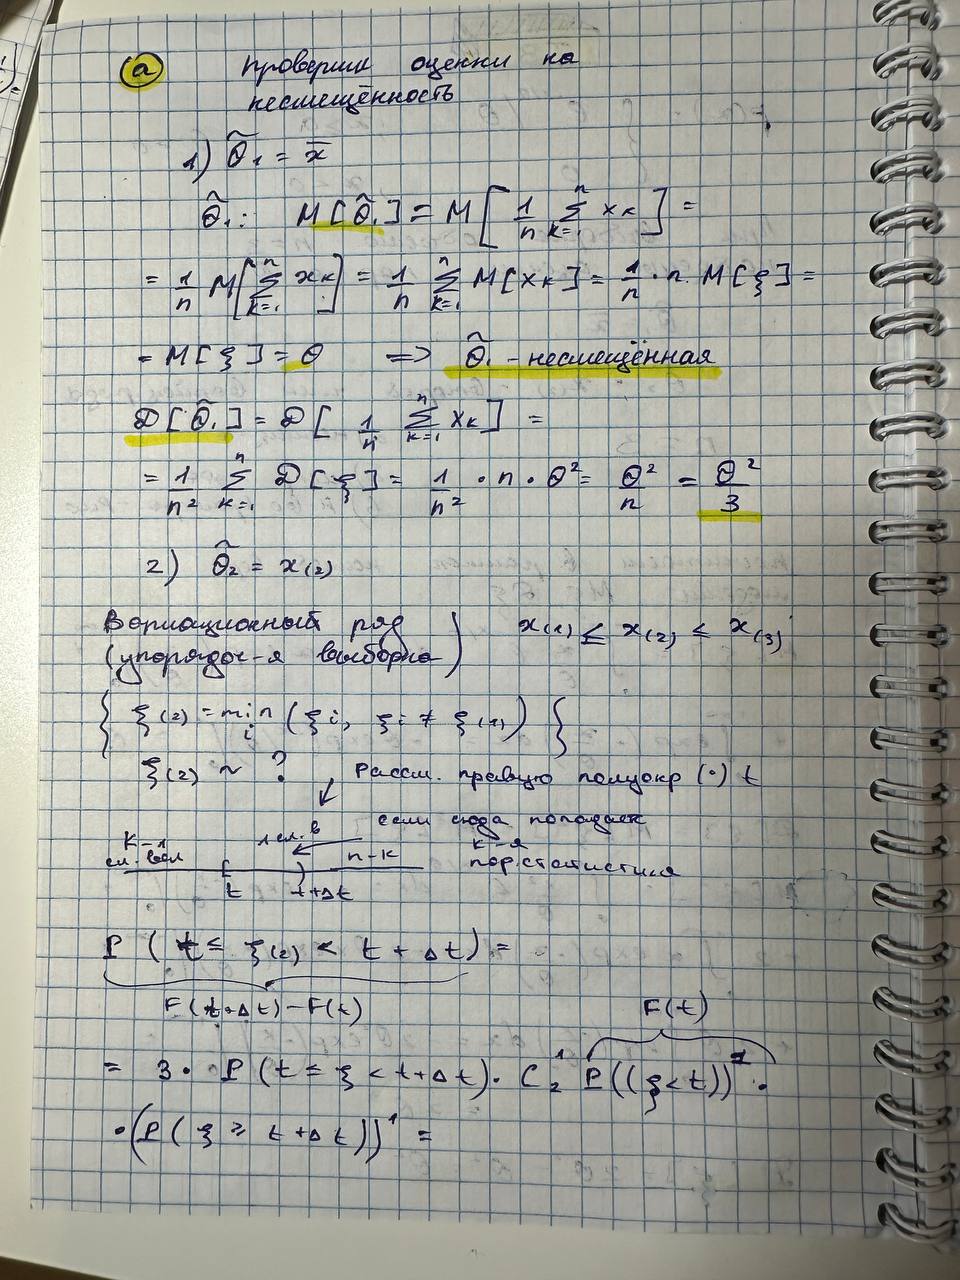 а) Проверим оценки на
несмещённость
1) θ̃₁ = x̄
θ̃₁: M[θ̃₁] = M[1/n Σₖ₌₁ⁿ xₖ] =
= 1/n M[Σₖ₌₁ⁿ xₖ] = 1/n Σₖ₌₁ⁿ M[xₖ] = 1/n · n · M[ξ] =
= M[ξ] = θ ⟹ θ̃₁ - несмещённая
D[θ̃₁] = D[1/n Σₖ₌₁ⁿ xₖ] =
= 1/n² Σₖ₌₁ⁿ D[ξ] = 1/n² · n · θ² = θ²/n = θ²/3
2) θ̃₂ = x₍₂₎
Вариационный ряд
(упорядоч-я выборка) x₍₁₎ ≤ x₍₂₎ ≤ x₍₃₎
{ ξ₍₂₎ = min_i (ξi, ξi ≠ ξ₍₁₎) }
ξ₍₂₎ ~ ? Рассм. правую полуокр (·) t
если сюда попадает
к-я
пор.статистика
к-1
сл. вел
1 сл. в
n-к
t t+Δt
P (t ≤ ξ₍₂₎ < t + Δt) =
F(t+Δt) - F(t)
F(t)
= 3 · P(t ≤ ξ < t+Δt) · C₂¹ P((ξ < t))¹ ·
· (P(ξ ≥ t+Δt))¹ =